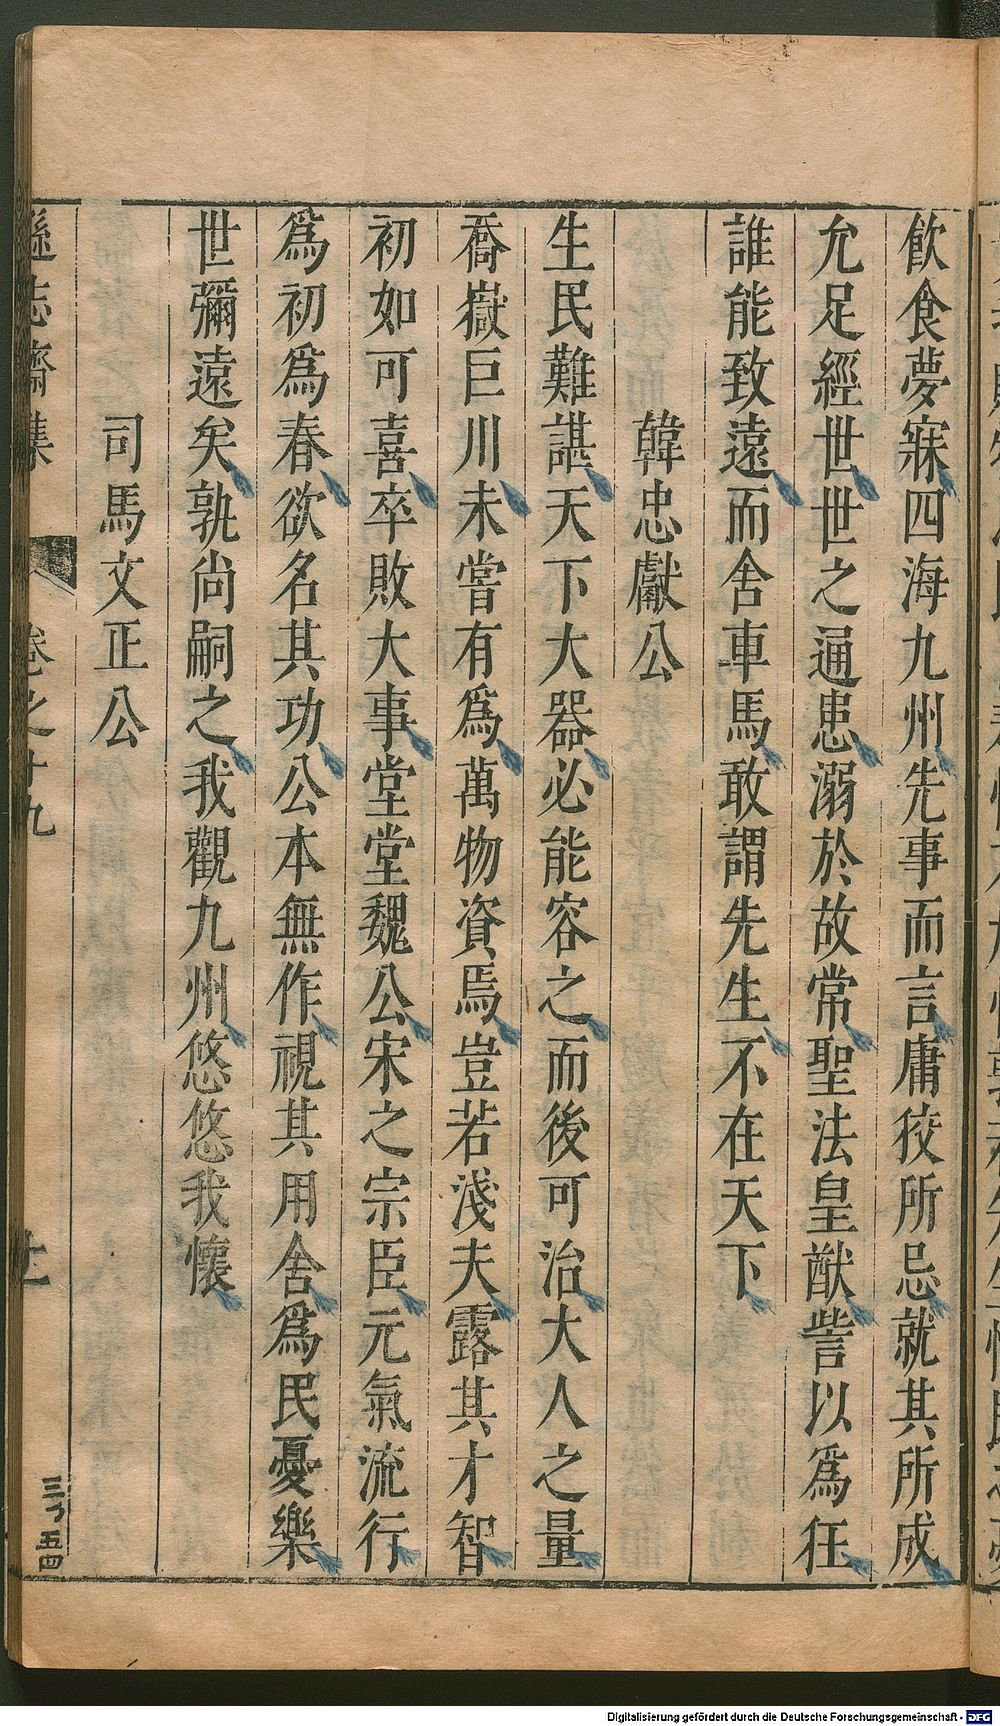 飲食夢寐四海九州先事而言庸狡所忌就其所成
允足經世世之通患溺於故常聖法皇猷訾以為狂
誰能致遠而舍車馬敢謂先生不在天下
韓忠獻公
生民難諶天下大器必能容之而後可治大人之量
喬嶽巨川未嘗有爲萬物資焉豈若淺夫露其才智
初如可喜卒敗大事堂堂魏公宋之宗臣元氣流行
爲初爲春欲名其功公本無作視其用舍爲民憂樂
世彌遠矣孰尚嗣之我觀九州悠悠我懷
司馬文正公
遜志齋集
卷之十九
Digitalisierung gefördert durch die Deutsche Forschungsgemeinschaft - DFG